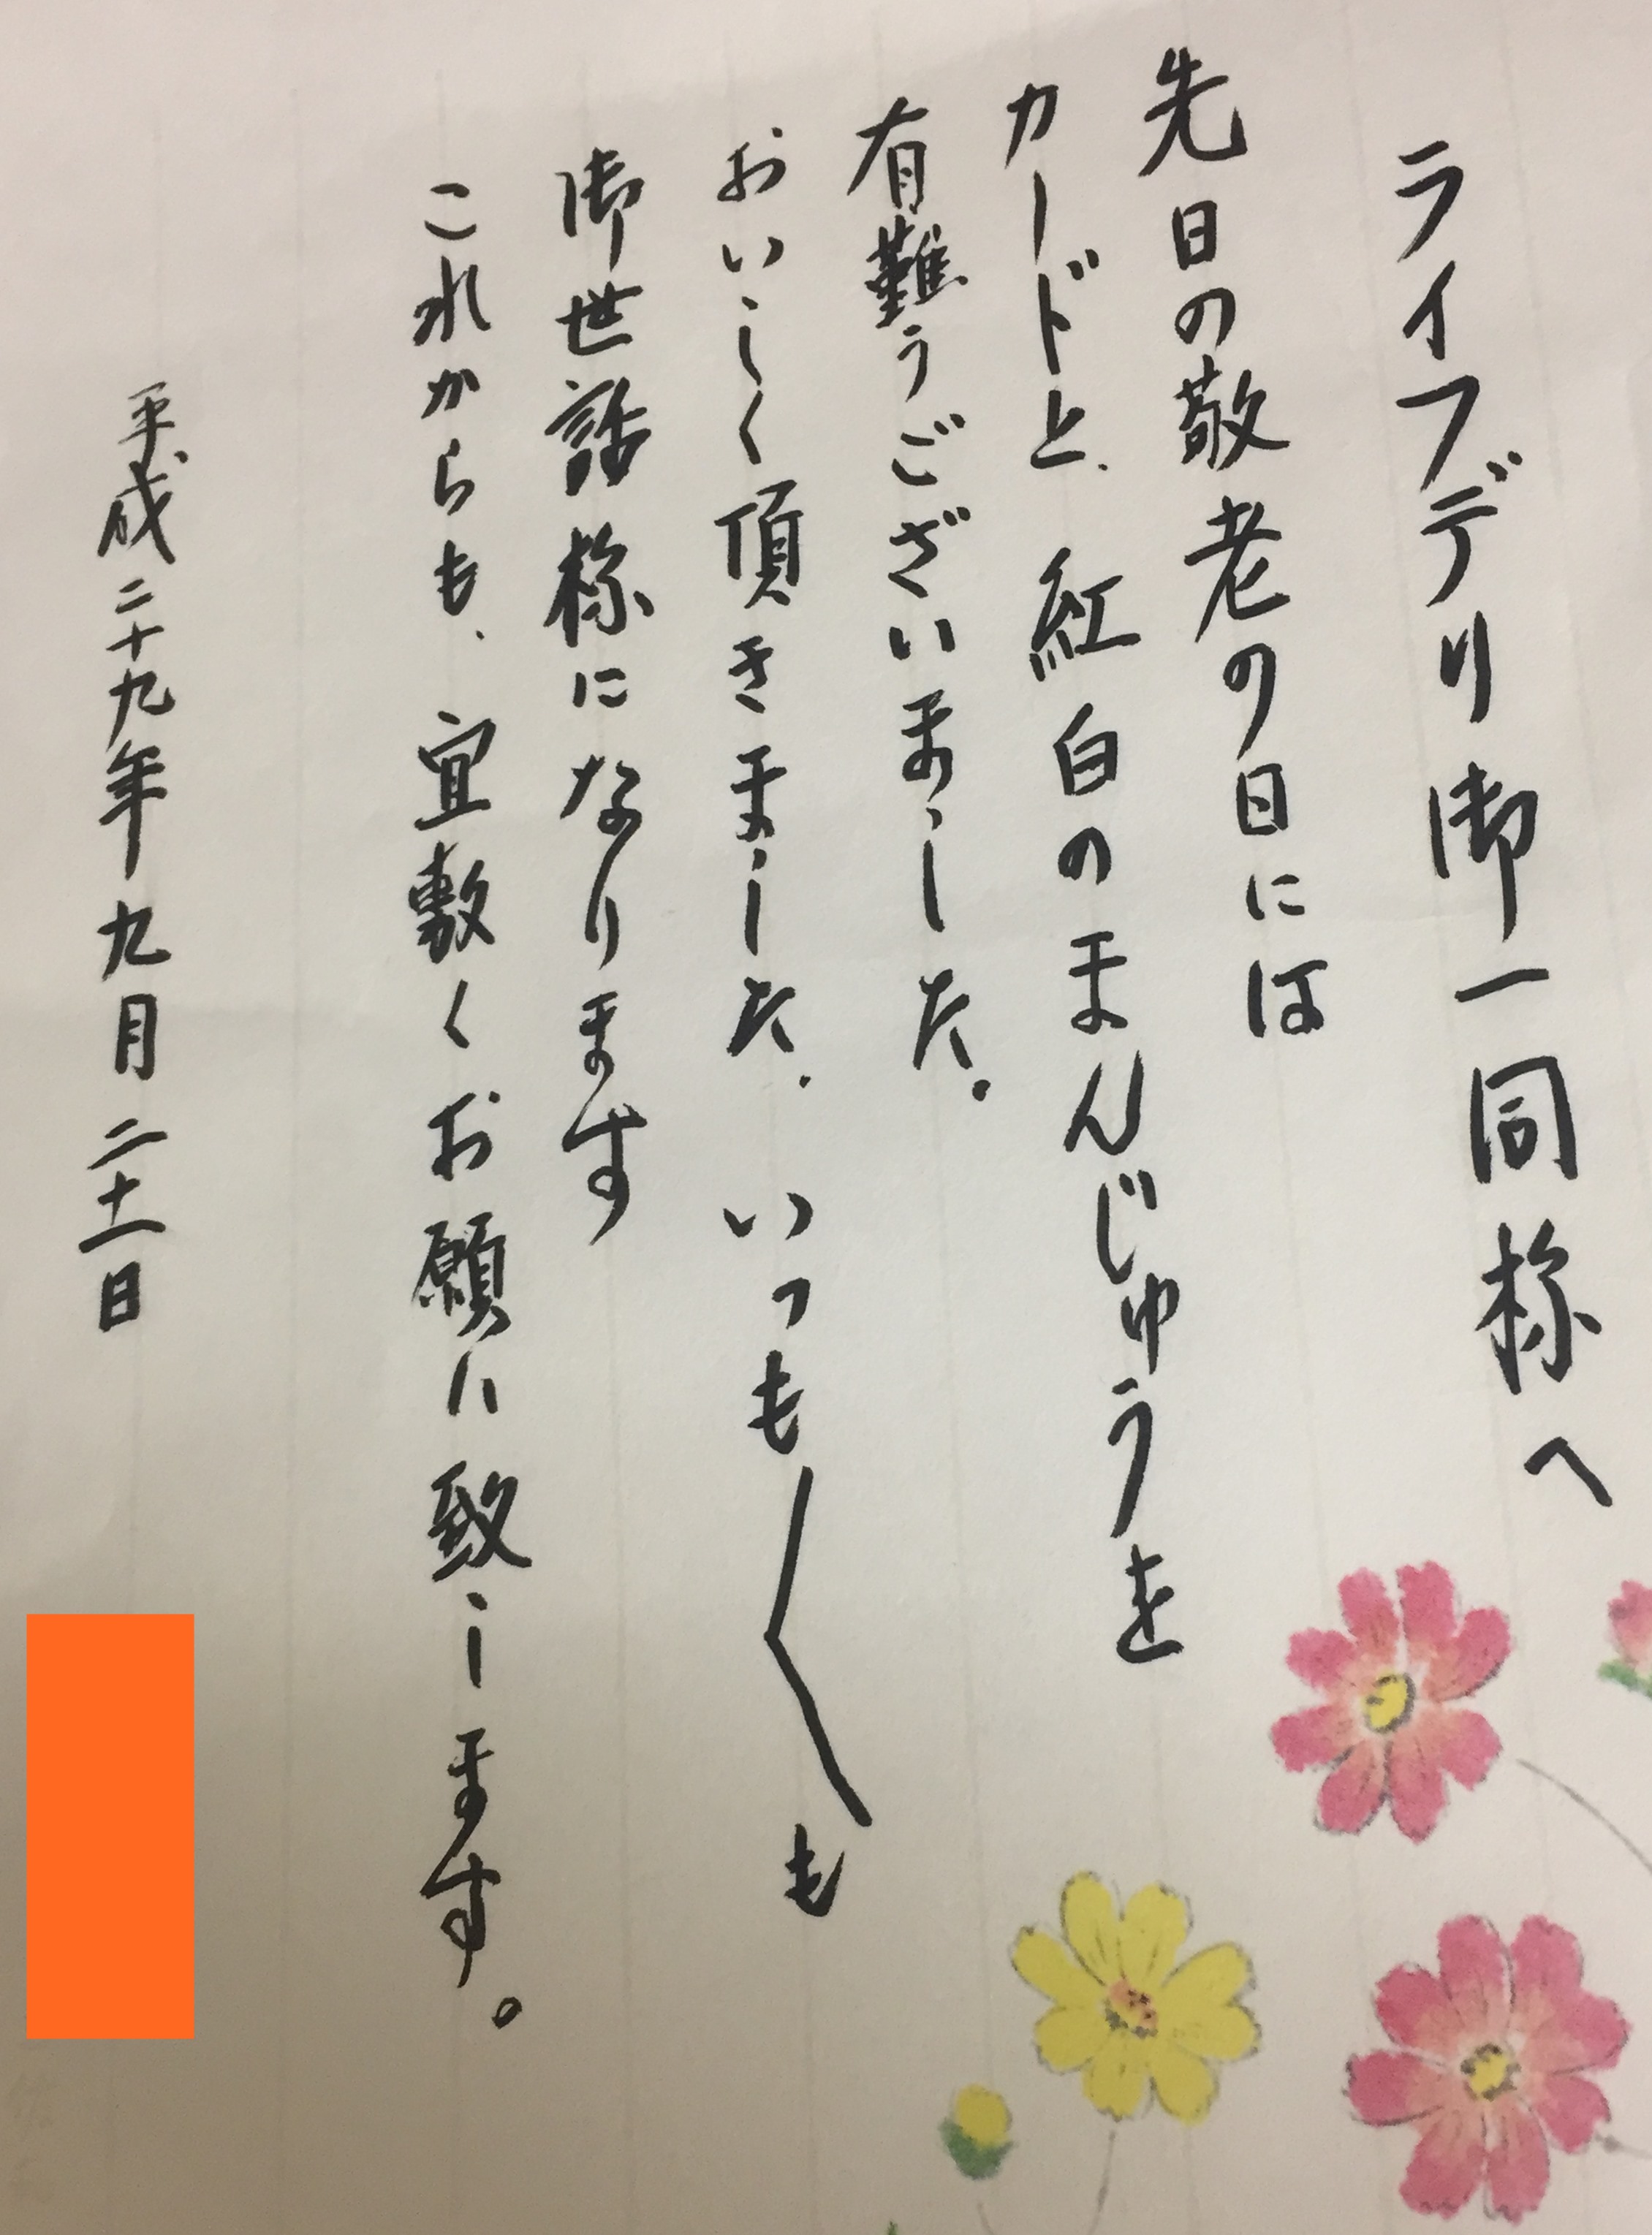 ライフデリ御一同様へ
先日の敬老の日には
カードと、紅白のまんじゅうを
有難うございました。
おいしく頂きました、いつも〱も
御世話様になります
これからも、宜敷くお願い致します。
平成二十九年九月二十一日